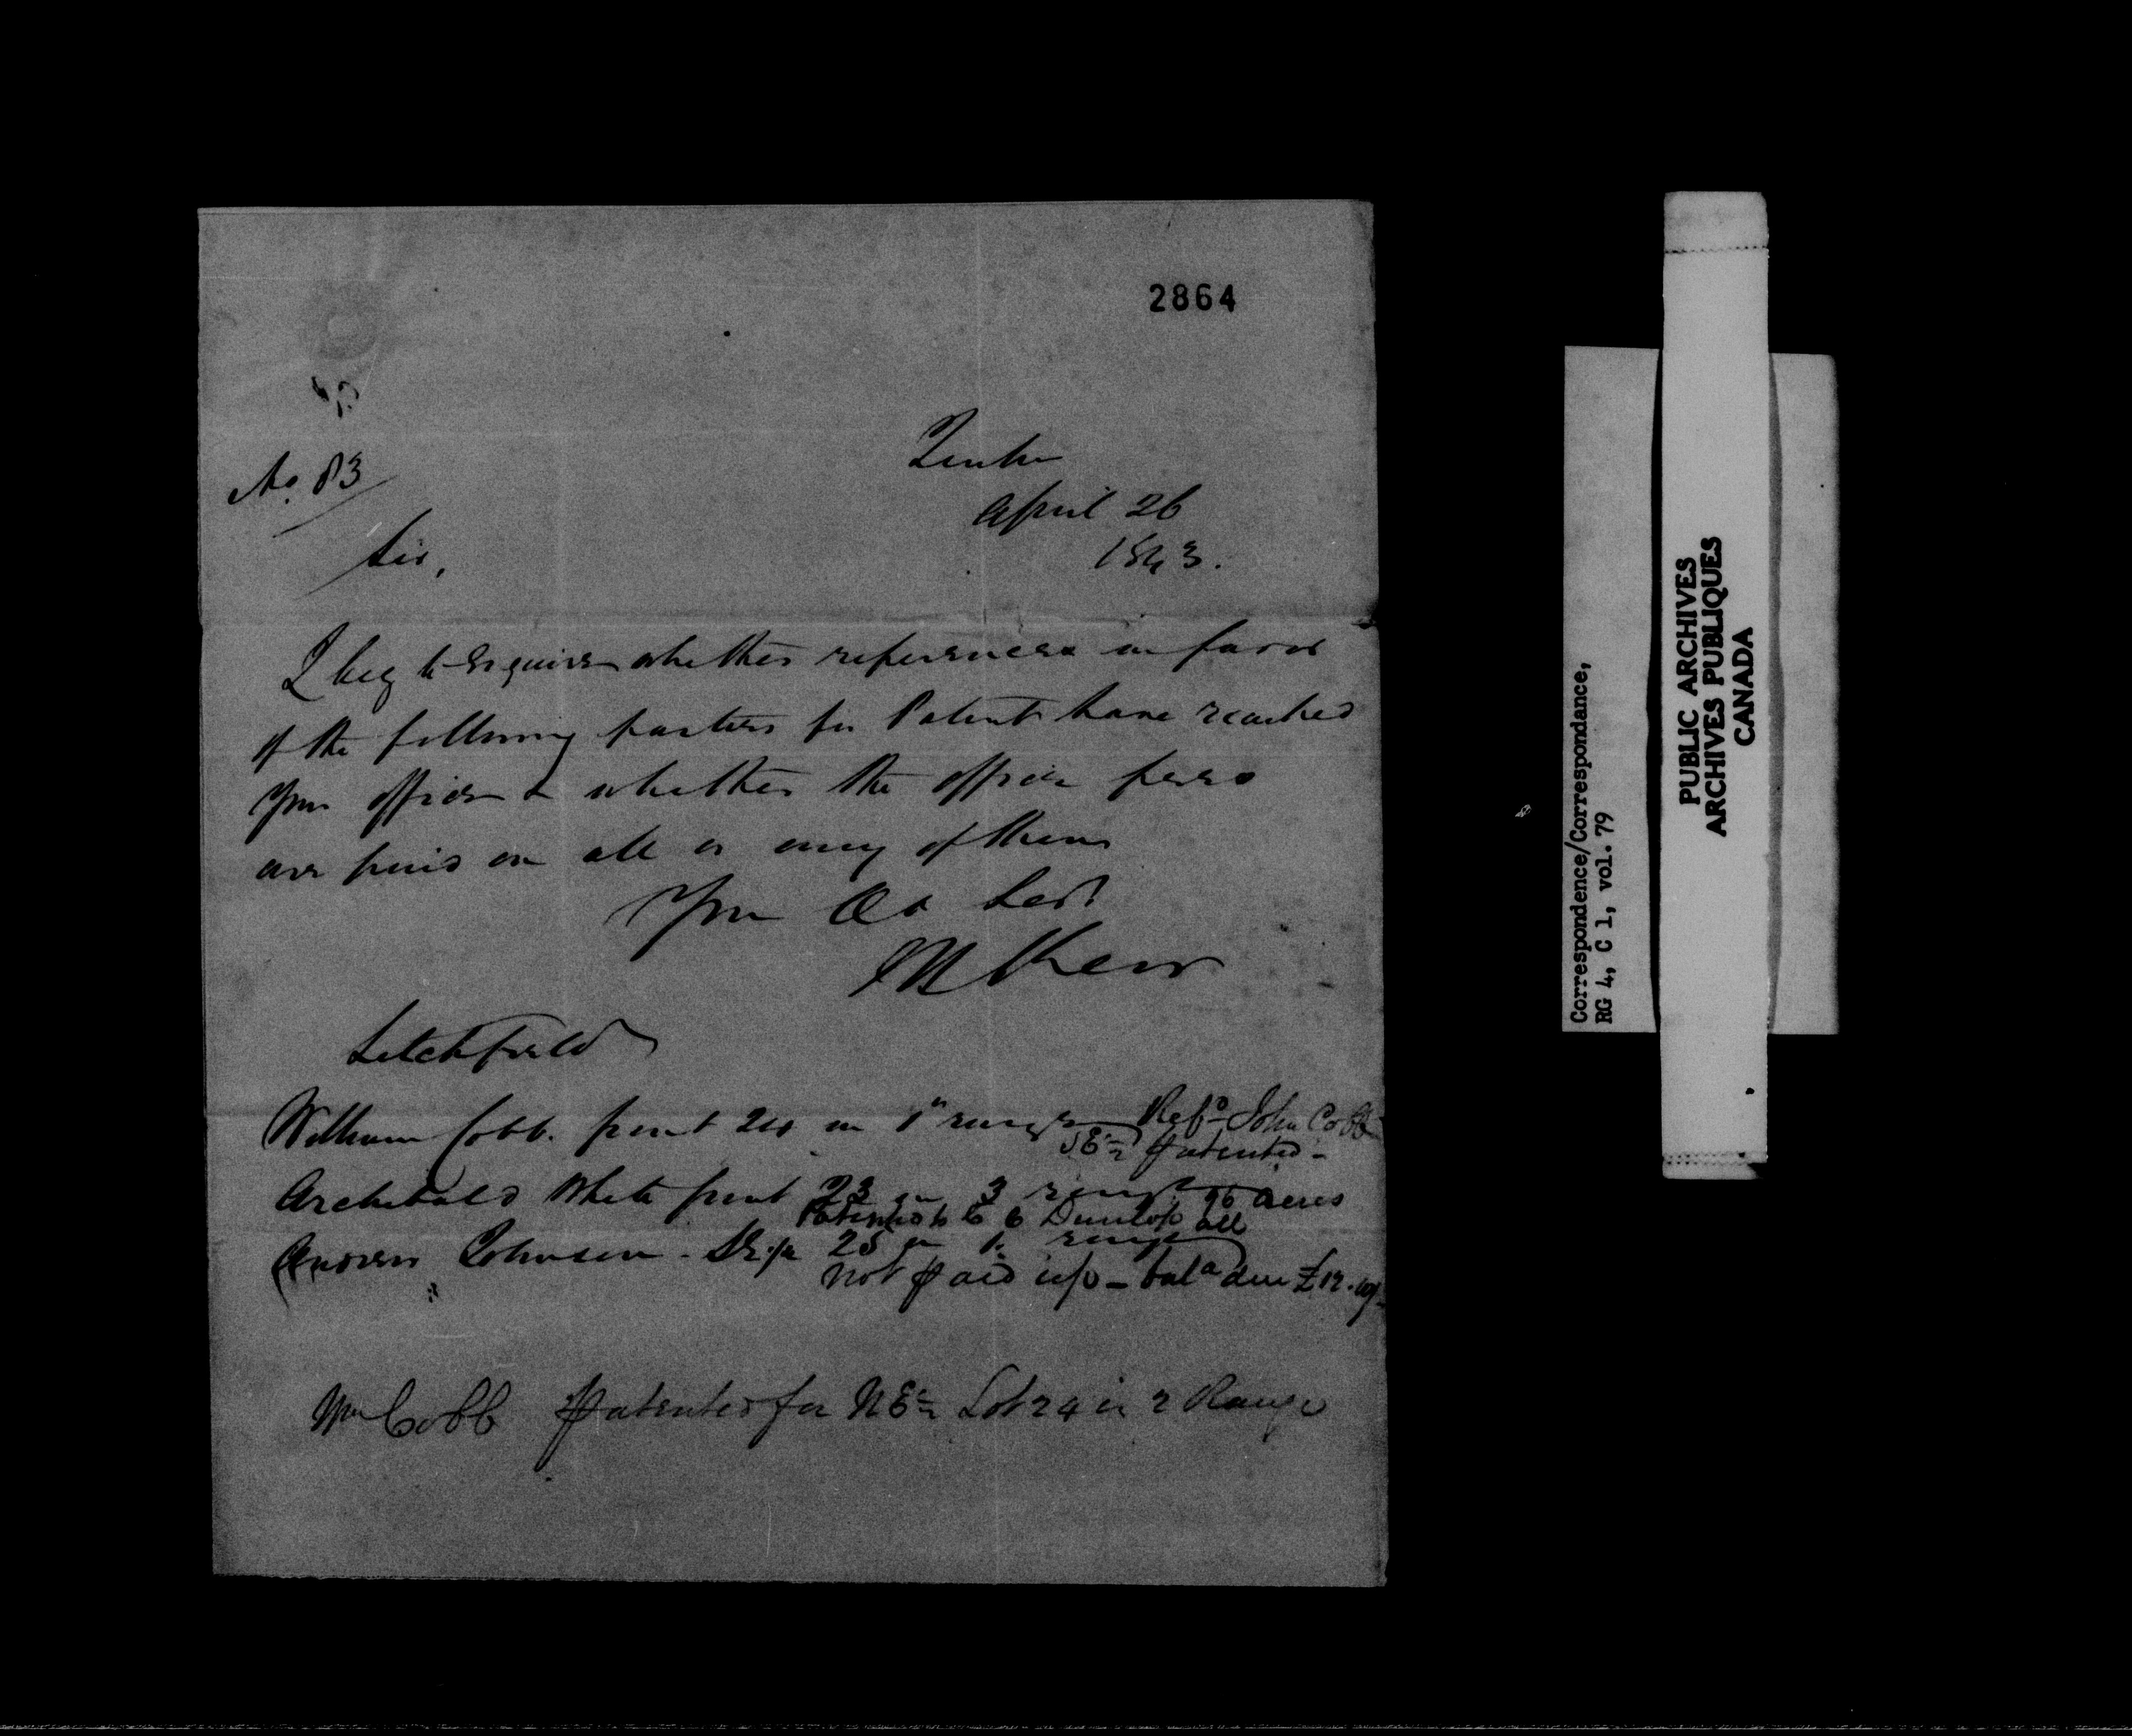 2864
No. 83
April 26
1843.
Sir,
I beg to enquire whether references in favor
of the following parties for Patent have reached
your office & whether the office fees
are paid on all or any of them
Your Ob Sert
Kerr
Litchfield
William Cobb. front 24 in 1st range Refd John Cobb
patented -
Archibald White front 23 in 3 range 96 acres
Patented to Dunlop all
Andrew Johnson 25 in 1. range
not paid up - bala due £12.
Wm Cobb patented for NE½ Lot 24 in 2 Range
Correspondence/Correspondance,
RG 4, C 1, vol. 79
PUBLIC ARCHIVES
ARCHIVES PUBLIQUES
CANADA